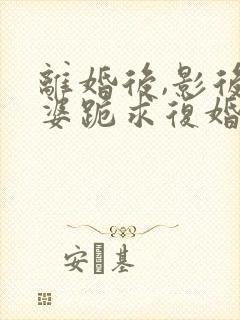 離婚後,影後
婆跪求復婚
安 基